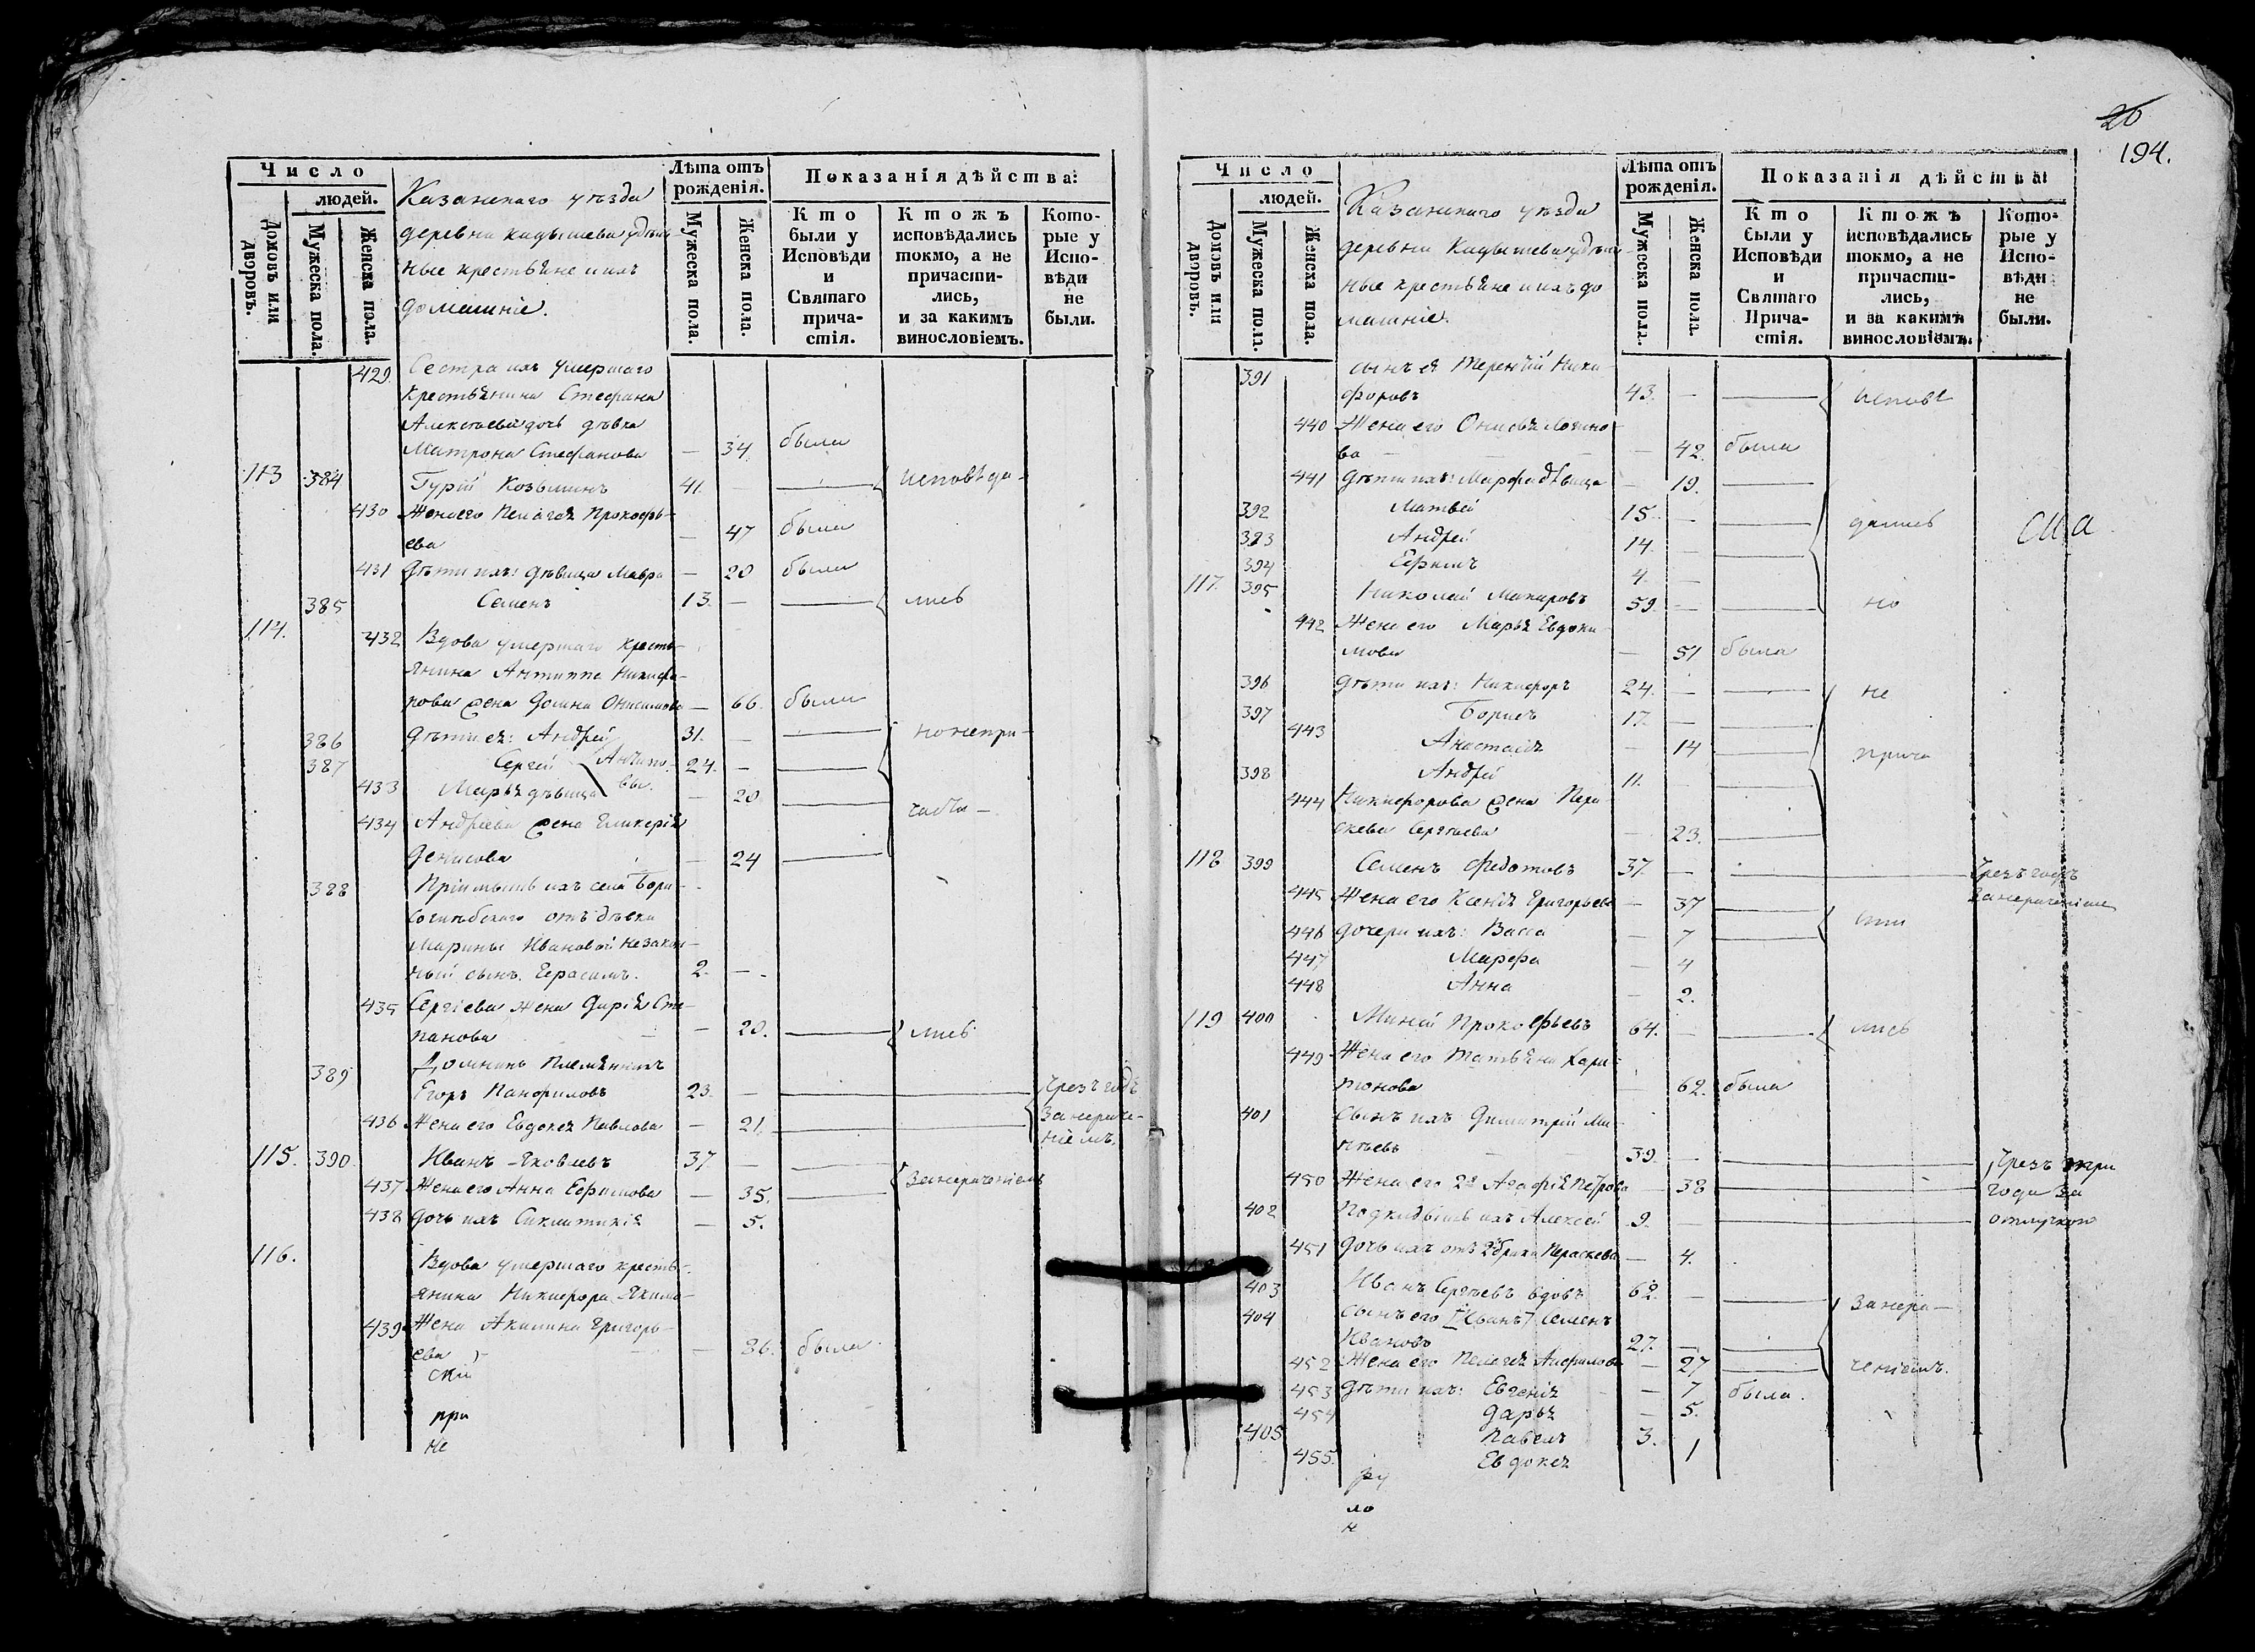 Число
людей.
Домовъ или дворовъ.
Мужеска пола.
Женска пола.
Казанскаго уѣзда
деревни Кадышева удѣль-
ные крестьяне и ихъ
домашніе.
Лѣта отъ рожденія.
Мужеска пола.
Женска пола.
Показанія дѣйства:
Кто были у Исповѣди и Святаго прича-стія.
Ктожъ исповѣдались токмо, а не причасти-лись, и за какимъ винословіемъ.
Кото-рые у Испо-вѣди не были.
429. Сестра ихъ умершаго
крестьянина Стефана
Алексѣева дочь дѣвка
Матрона Стефанова — 34 была
113 384 Гурій Козьминъ 41. исповѣда-
430 Жена его Пелагея Прокофь-
ева — 47 была
431 Дѣти ихъ: дѣвица Мавра — 20 была
385 Семенъ 13. — лись
114. 432 Вдова умершаго кресть-
янина Антиппа Никифо-
рова жена Домна Онисимова — 66. была
386 Дѣти ея: Андрей 31. — но непри-
387 Сергей Антипо- 24. —
вы.
433 Марья дѣвица — 20
434 Андреева жена Гликерія
Денисова — 24
388 Пріимышъ ихъ села Бори-
соглѣбскаго отъ дѣвки
Марины Ивановой незакон-
ный сынъ Герасимъ. 2. —
435 Сергіева жена Дарія Сте-
панова — 20. лись
389 Домнинъ племянникъ
Егоръ Панфиловъ 23. — Чрезъ годъ
436 Жена его Евдокея Павлова — 21. за нераче-
ніемъ.
115. 390 Иванъ Яковлевъ 37 —
437 Жена его Анна Ефимова — 35. за нераченіемъ
438 Дочь ихъ Синклитикія — 5.
116. Вдова умершаго кресть-
янина Никифора Якимо-
439 Жена Акилина Григорь-
ева — 86. была
скій
при
не
26
194.
Число
людей.
Домовъ или дворовъ.
Мужеска пола.
Женска пола.
Казанскаго уѣзда
деревни Кадышева удѣль-
ные крестьяне и ихъ до
машніе.
Лѣта отъ рожденія.
Мужеска пола.
Женска пола.
Показанія дѣйства:
Кто были у Исповѣди и Святаго Прича-стія.
Ктожъ исповѣдались токмо, а не причасти-лись, и за какимъ винословіемъ.
Кото-рые у Испо-вѣди не были.
391 Сынъ ея Терентій Ники-
форовъ 43. — исповѣ
440 Жена его Онисья Логино-
ва — 42. была
441 Дѣти ихъ: Марфа дѣвица — 19.
392 Матвей 15. — дались
393 Андрей 14. —
394 Ефимъ 4. —
117. 395 Николай Макаровъ 59. — но
442 Жена его Марья Евдоки-
мова — 51 была
396 Дѣти ихъ: Никифоръ 24. — не
397 Борисъ 17. —
443 Анастасія — 14 прича
398 Андрей 11. —
444 Никифорова жена Пара-
скева Сергѣева — 23.
118 399 Семенъ Федотовъ 37. — Чрезъ годъ
445 Жена его Ксенія Григорьева — 37 за нераченіемъ
446 Дочери ихъ: Васса — 7 сти
447 Марфа — 4
448 Анна — 2.
119 400 Миней Прокофьевъ 64. — лись
449 Жена его Татьяна Хари-
тонова — 62. была
401 Сынъ ихъ Димитрій Ми-
нѣевъ 39. — Чрезъ три
450 Жена его 2я Агафія Петрова — 38 года за
402 Подкидышъ ихъ Алексей 9. — отлучкою
451 Дочь ихъ отъ 2 брака Параскева — 4.
403 Иванъ Сергѣевъ вдовъ 62. — за нера-
404 Сынъ его Иванъ Семенъ
Ивановъ 27. —
452 Жена его Пелагея Анфилова — 27 ченіемъ.
453 Дѣти ихъ: Евгенія — 7 была.
454 Дарья — 5.
405 Павелъ 3.
455. Евдокея 1
ру
ло
н